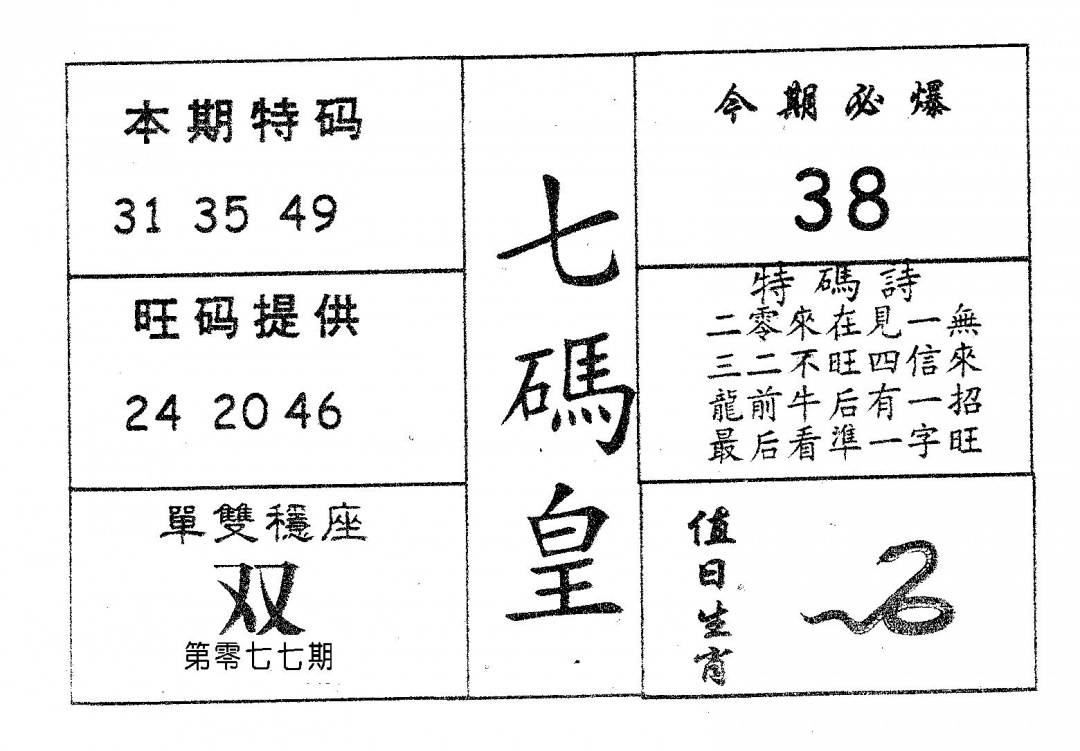 本期特码
31 35 49
旺码提供
24 20 46
單雙穩座
双
第零七七期
七碼皇
今期必爆
38
特碼詩
二零來在見一無
三二不旺四信來
龍前牛后有一招
最后看準一字旺
值日生肖